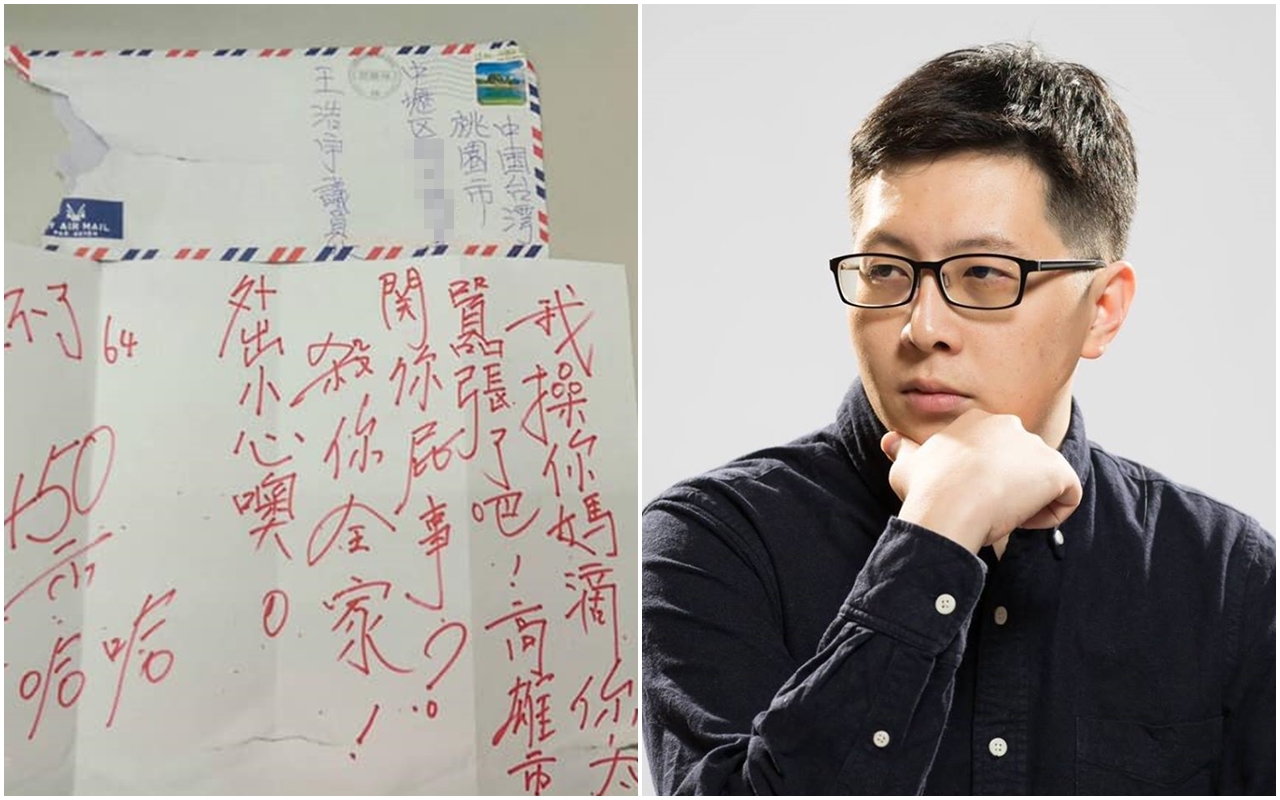 中國台湾
桃園市
中壢区
王浩宇議員
AIR MAIL
PAR AVION
我操你媽滴你太
囂張了吧！高雄市
関你屁事？
殺你全家！
外出小心噢。
64
哈
不了
哈